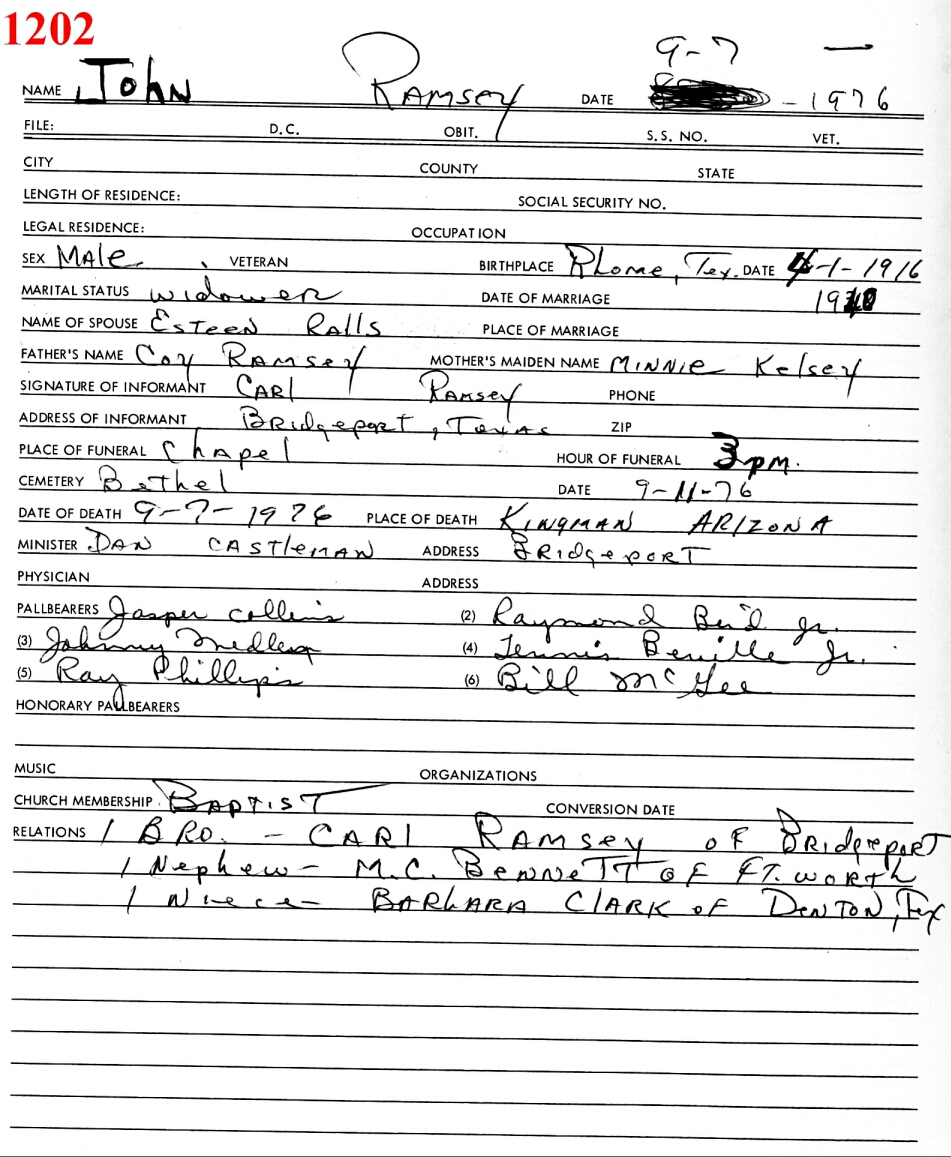 1202
9-7 —
NAME John Ramsey DATE - 1976
FILE: D.C. OBIT. S.S. NO. VET.
CITY COUNTY STATE
LENGTH OF RESIDENCE: SOCIAL SECURITY NO.
LEGAL RESIDENCE: OCCUPATION
SEX MALe VETERAN BIRTHPLACE Rhome, Tex. DATE 4-1-1916
MARITAL STATUS widower DATE OF MARRIAGE
NAME OF SPOUSE ESTEEN RAlls PLACE OF MARRIAGE
FATHER'S NAME Coy RAMSEY MOTHER'S MAIDEN NAME MINNIE Kelsey
SIGNATURE OF INFORMANT CARl RAMSEY PHONE
ADDRESS OF INFORMANT BRidgeport, Texas ZIP
PLACE OF FUNERAL Chapel HOUR OF FUNERAL 3pm.
CEMETERY Bethel DATE 9-11-76
DATE OF DEATH 9-7-1976 PLACE OF DEATH KINGMAN ARIZONA
MINISTER DAN CASTleMAN ADDRESS BRidgePORT
PHYSICIAN ADDRESS
PALLBEARERS Jasper Collins (2) Raymond Jr.
(3) Johnny (4) Tennis Beville Jr.
(5) Ray Phillips (6) Bill McGee
HONORARY PALLBEARERS
MUSIC ORGANIZATIONS
CHURCH MEMBERSHIP BAPTIST CONVERSION DATE
RELATIONS 1 BRO. - CARl RAMSEY OF BRidgePORT
1 Nephew - M.C. BENNETT OF FT. WORTH
1 Niece - BARbARA ClARK OF DENTON, Tex